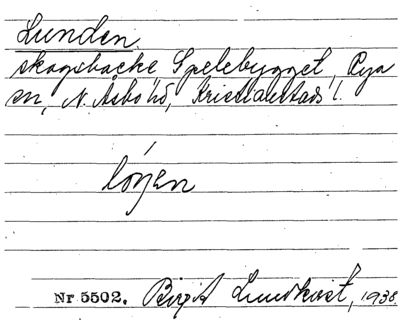 Lunden
skogsbacke, Spelebygget, Rya
sn, N. Åsbo hd, Kristianstads l.
Nr 5502. Birgit Lundkvist, 1938.